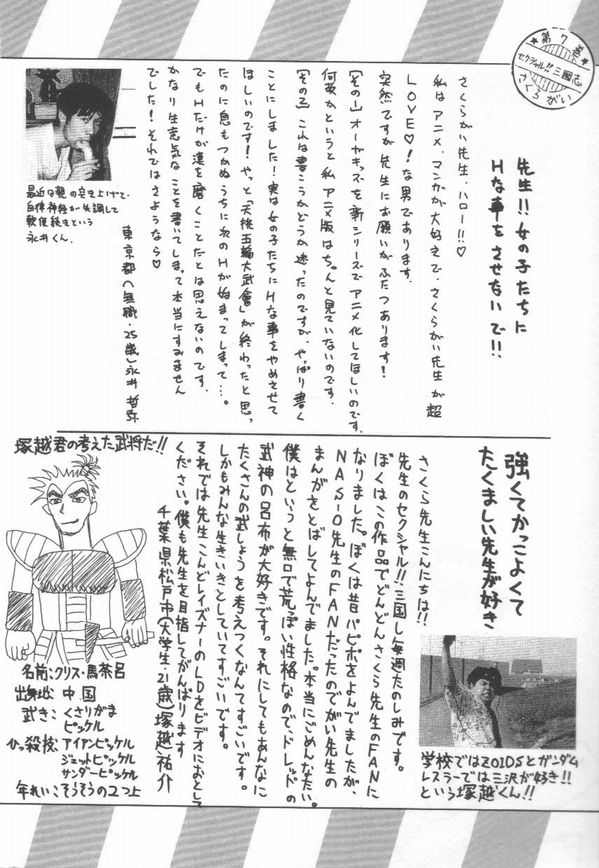 ★第7巻★
セクシャル!!三國志
さくらがい
先生!!女の子たちに
Hな事をさせないで!!
さくらがい先生、ハロー!!♡
私はアニメ、マンガが大好きで、さくらがい先生が超
LOVE♡!な男であります。
突然ですが先生にお願いがふたつあります!
[その1]オーヤキッズを新シリーズでアニメ化してほしいのです。
何故かというと私アニメ版はちゃんと見ていないのです。
[その2]これは書こうかどうか迷ったのですが、やっぱり書く
ことにしました!実は女の子たちにHな事をやめさせて
ほしいのです!やっと「天桃五輪大武會」が終わったと思っ
たのに息もつかぬうちに次のHが始まってしまって…。
でもHだけが蓮を磨くことだとは思えないのです。
かなり生意気なことを書いてしまって本当にすみません
でした!それではさようなら♡
東京都(無職・25歳)永井哲弥
最近は親の突き上げで、
自律神経が失調して
軟便続きという
永井くん。
強くてかっこよくて
たくましい先生が好き
さくら先生こんにちは!!
先生のセクシャル!!三国し毎週たのしみです。
ぼくはこの作品でどんどんさくら先生のFANに
なりました。ぼくは昔パピポをよんでましたが、
NAS-O先生のFANだったのでがい先生の
まんがをとばしてよんでました。本当にごめんなさい。
僕はというと無口で荒っぽい性格なので、ドレッドの
武神の呂布が大好きです。それにしてもあんなに
たくさんの武しょうを考えつくなんてすごいです。
しかもみんな生きいきとしていてすごいです。
それでは先生こんどレイズナーのLDをビデオにおとして
ください。僕も先生を目指してがんばります
千葉県松戸市(大学生・21歳)塚越祐介
学校ではZOIDSとガンダム
レスラーでは三沢が好き!!
という塚越くん!!
塚越君の考えた武将だ!!
名前:クリス・馬茶呂
出身地:中国
武き:くさりがま
ピッケル
ひっ殺技:アイアンピッケル
ジェットピッケル
サンダーピッケル
年れい:そうそうの2つ上